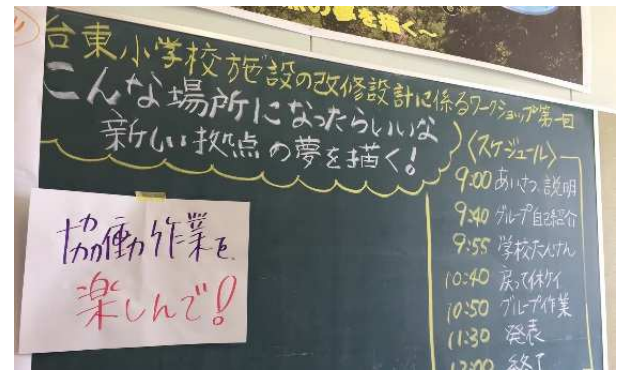 の夢を描く～
台東小学校施設の改修設計に係るワークショップ第一回
こんな場所になったらいいな
新しい拠点の夢を描く!
〈スケジュール〉
9:00 あいさつ、説明
9:40 グループ自己紹介
9:55 学校たんけん
10:40 戻って休ケイ
10:50 グループ作業
11:30 発表
12:00 終了
協働作業を
楽しんで!